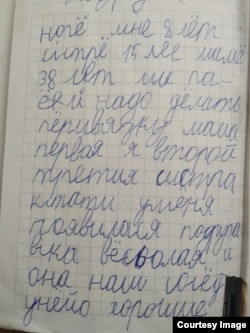 ногё мне 8 лет
систрё 15 лет мамё
38 лет мы па-
ёй надо дёлать
пёривязку мама
первая я второй
третия систра
кстати уменя
появилася подруга
ька вёсолая и
она наш сосед
унейо хорошие
Courtesy Image